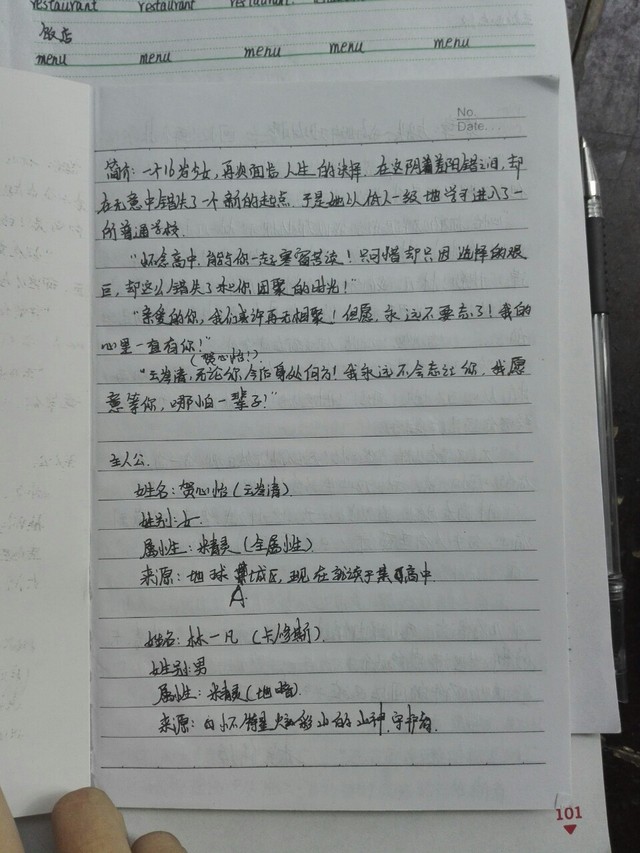 restaurant restaurant restaurant
饭店
menu menu menu menu menu
No.
Date...
简介:一个16岁少女,再次面临人生的抉择,在这阴差差阳错之间,却
在无意中错失了一个新的起点,于是她以低人一级地学子进入了一
所普通学校.
“怀念高中,能与你一起寒窗苦读!只可惜却只因选择的艰
巨,却这么错失了和你团聚的时光!”
“亲爱的你,我们或许再无相聚!但愿永远不要忘了!我的
心里一直有你!”
(贺心怡!)
“云岩清,无论你今后身处何方!我永远不会忘记你,我愿
意等你,哪怕一辈子!”
主人公.
姓名:贺心怡(云岩清).
姓别:女.
属性:精灵(全属性)
来源:地球城区,现在就读于某高中.
A
姓名:林一凡(卡修斯).
姓别:男
属性:精灵(地暗).
来源:白 火山的山神,守护者.
101